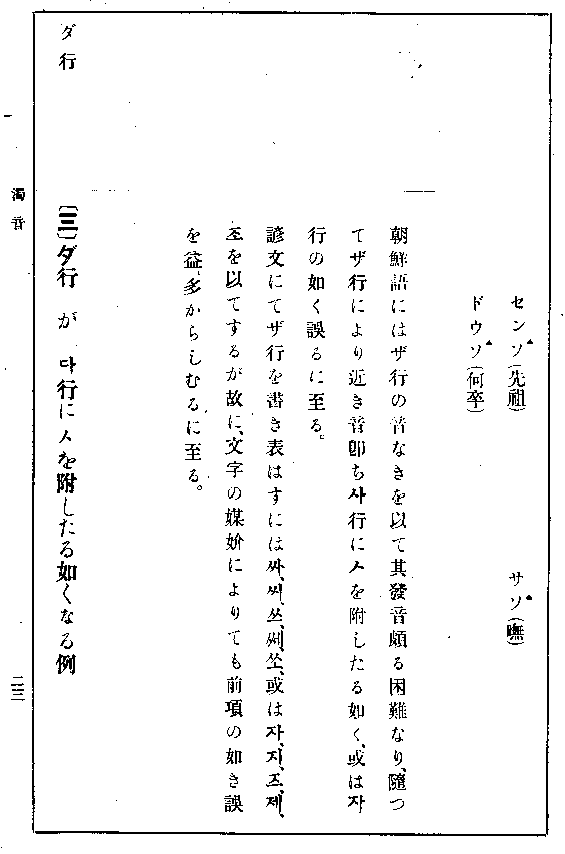 センソ(先祖) サソ(嘸)
ドウソ(何卒)
朝鮮語にはザ行の音なきを以て其發音頗る困難なり、隨つ
てザ行により近き音卽ち사行にㅅを附したる如く、或は자
行の如く誤るに至る。
諺文にてザ行を書き表はすには싸、씨、쓰、쎄、쏘、或は자、지、즈、제、
조を以てするが故に、文字の媒妎によりても前項の如き誤
を益、多からしむるに至る。
〔三〕ダ行 が 다行にㅅを附したる如くなる例
ダ行
濁音
二三